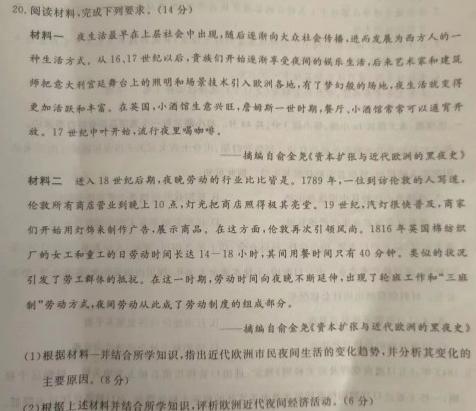 20. 阅读材料,完成下列要求。(14分)
材料一 夜生活最早在上层社会中出现,随后逐渐向大众社会传播,进而发展为西方人的一
种生活方式。从16、17世纪以后,贵族们开始逐渐享受夜间的娱乐生活,后来艺术家和建筑
师把意大利宫廷舞台上的照明和场景技术引入欧洲各地,有了梦幻般的场地,夜生活就变得
更加活跃和丰富。在英国,小酒馆生意兴旺,詹姆斯一世时期,餐厅、小酒馆常常可以通宵开
放。17世纪中叶开始,流行夜里喝咖啡。
——摘编自俞金尧《资本扩张与近代欧洲的黑夜史》
材料二 进入18世纪后期,夜晚劳动的行业比比皆是。1789年,一位到访伦敦的人写道,
伦敦所有商店营业到晚上10点,灯光把商店照得极其亮堂。19世纪,汽灯很快普及,商家
们开始用灯饰来制作广告,展示商品。在这方面,伦敦再次引领风尚。1816年英国棉纺织
厂的女工和童工的日劳动时间长达14—18小时,其间用餐时间只有40分钟。类似的状况
引发了劳工群体的抵抗。在这一时期,劳动时间向夜晚不断延伸,出现了轮班工作和“三班
制”劳动方式,夜间劳动从此成了劳动制度的组成部分。
——摘编自俞金尧《资本扩张与近代欧洲的黑夜史》
(1)根据材料一并结合所学知识,指出近代欧洲市民夜间生活的变化趋势,并分析其变化的
主要原因。(8分)
(2)根据上述材料并结合所学知识,评析欧洲近代夜间经济活动。(6分)